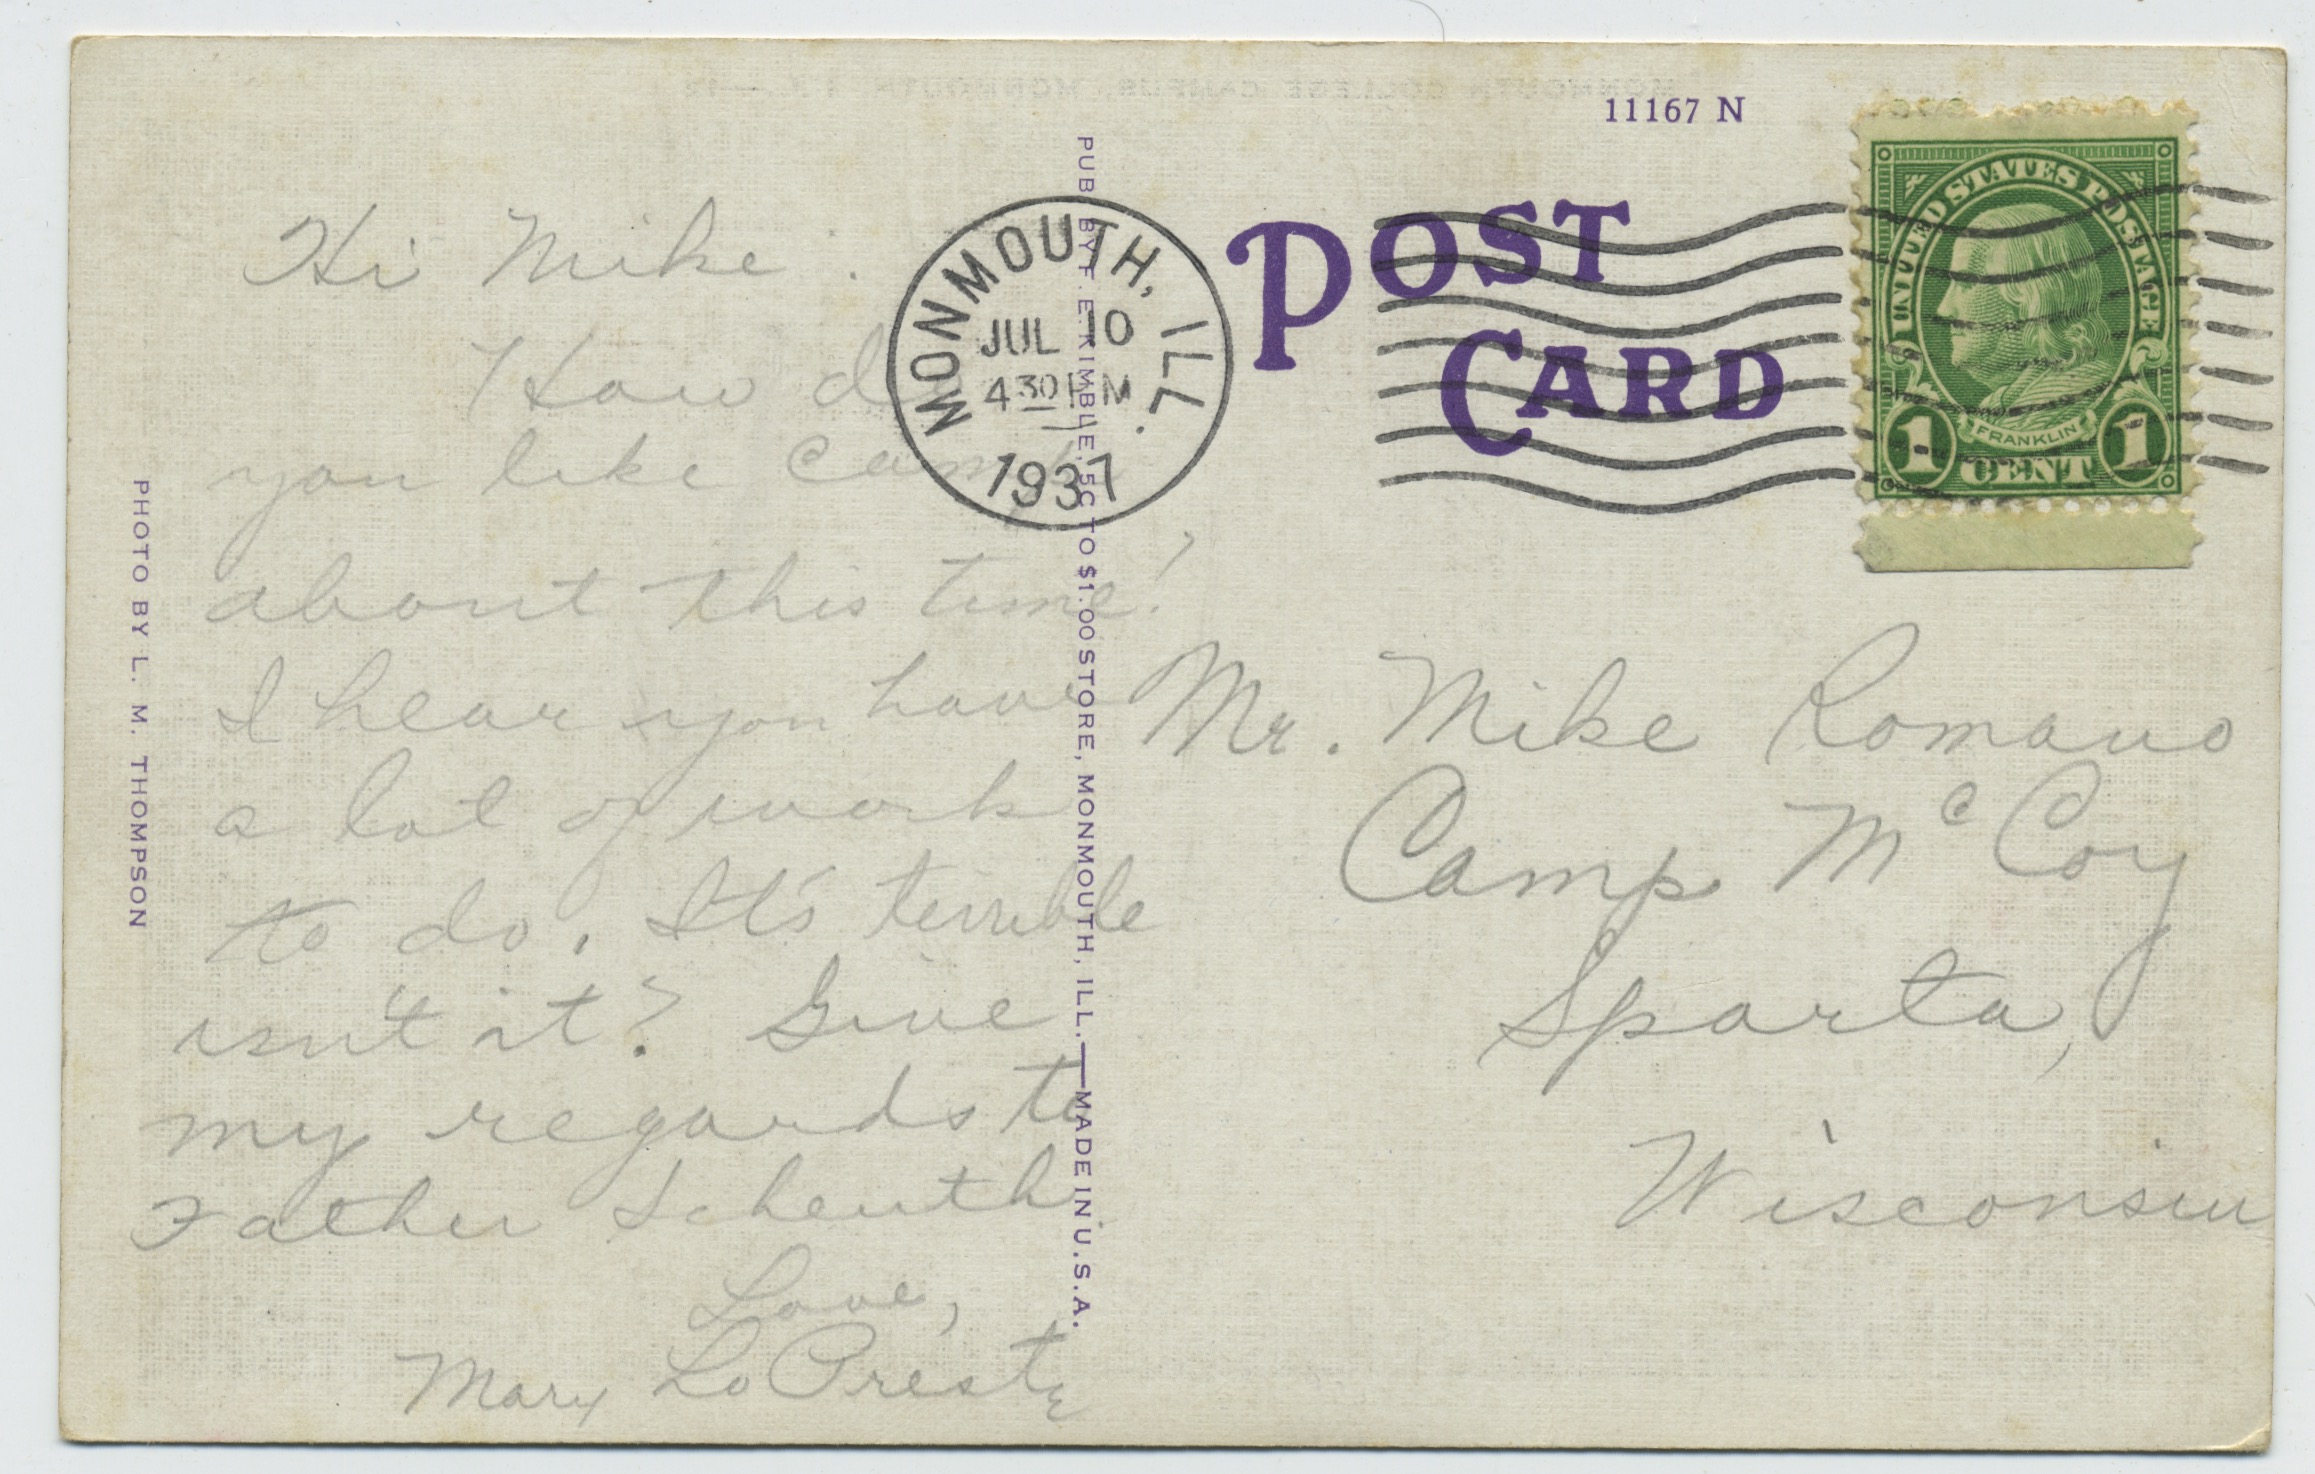 11167 N
POST
CARD
MONMOUTH, ILL.
JUL 10
4 30 PM
1937
UNITED STATES POSTAGE
FRANKLIN
1 CENT 1
PHOTO BY L. M. THOMPSON
PUB. BY F. E. KIMBLE, 5C TO $1.00 STORE, MONMOUTH, ILL.—MADE IN U.S.A.
Hi Mike.
How do
you like Camp
about this time!
I hear you have
a lot of work
to do. It's terrible
isn't it? Give
my regards to
Father
Love,
Mary LoPresti
Mr. Mike Romano
Camp McCoy
Sparta,
Wisconsin